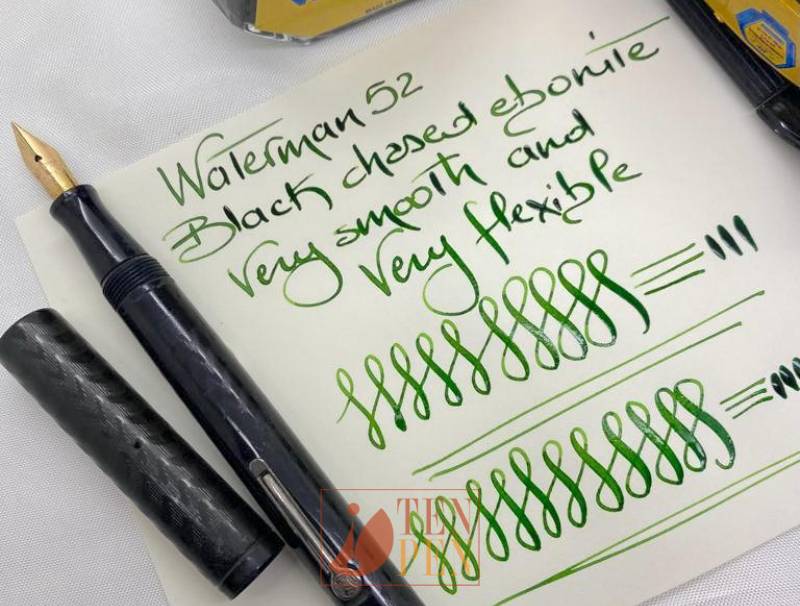 Waterman 52
Black chased ebonite
Very smooth and
Very flexible
TEN
PEN